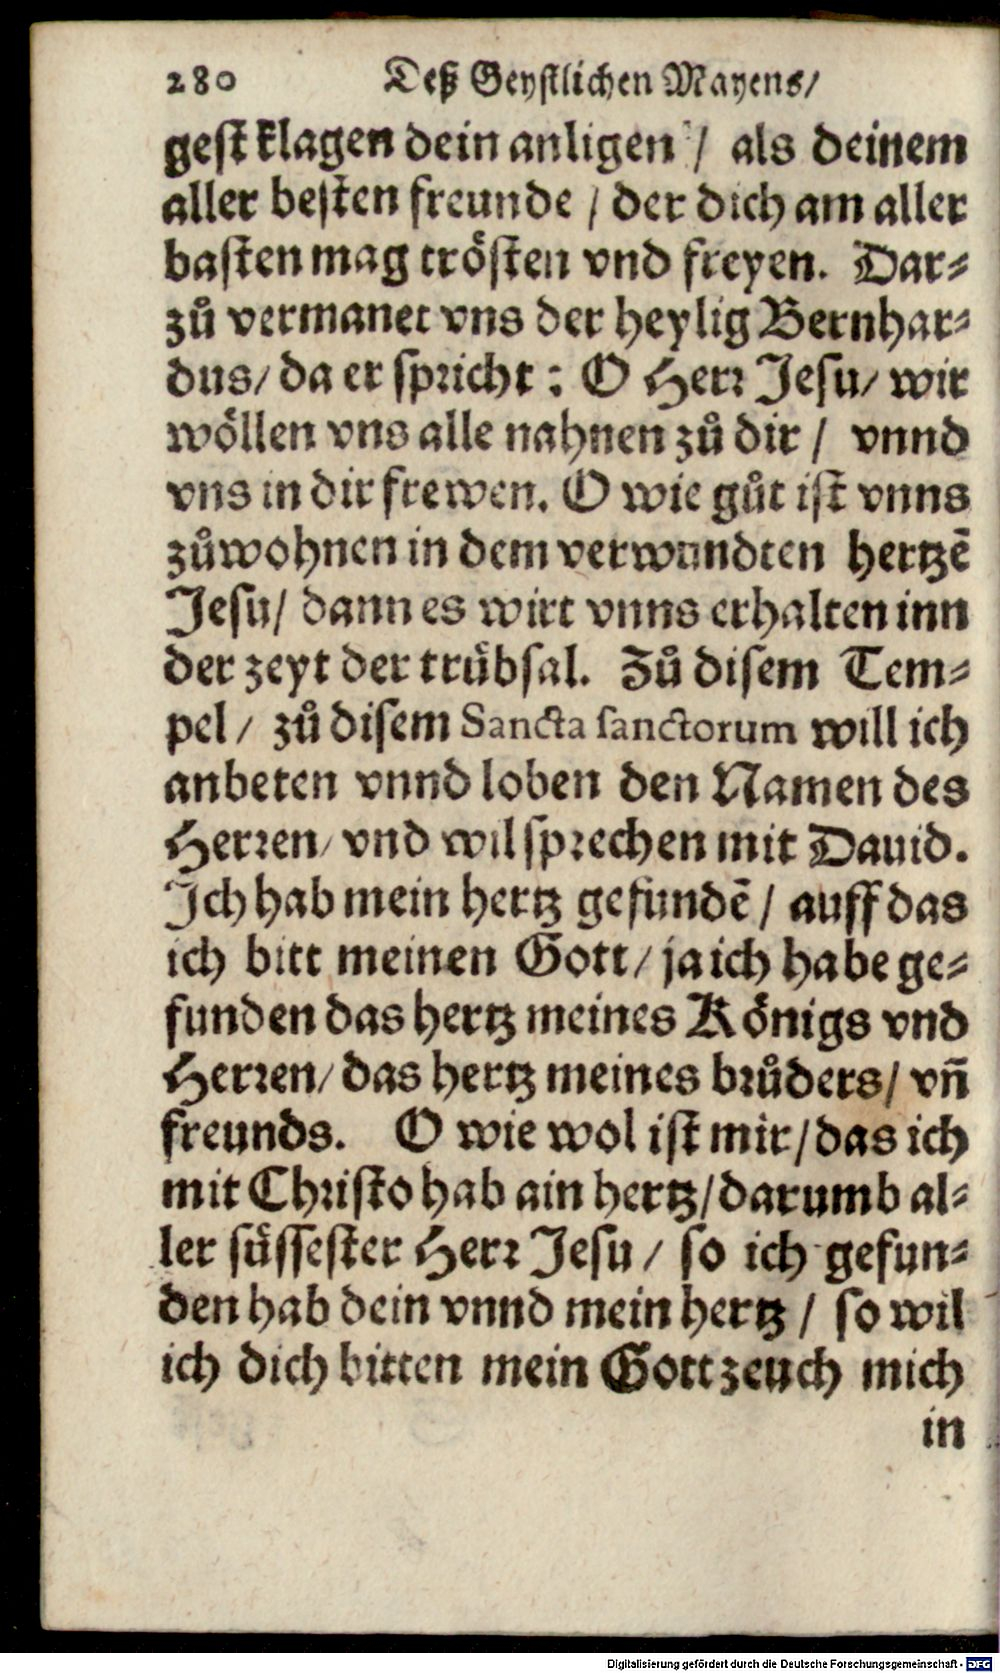 280 Deß Geystlichen Mayens/
gest klagen dein anligen / als deinem
aller besten freunde / der dich am aller
basten mag trösten vnd freyen. Dar⸗
zů vermanet vns der heylig Bernhar⸗
dus/ da er spricht: O Herr Jesu/ wir
wöllen vns alle nahnen zů dir / vnnd
vns in dir frewen. O wie gůt ist vnns
zůwohnen in dem verwundten hertzē
Jesu/ dann es wirt vnns erhalten inn
der zeyt der trübsal. Zů disem Tem⸗
pel/ zů disem Sancta sanctorum will ich
anbeten vnnd loben den Namen des
Herren/ vnd wil sprechen mit Dauid.
Ich hab mein hertz gefundē / auff das
ich bitt meinen Gott/ ja ich habe ge⸗
funden das hertz meines Königs vnd
Herren/ das hertz meines brůders/ vn̄
freunds. O wie wol ist mir/ das ich
mit Christo hab ain hertz/ darumb al⸗
ler süssester Herr Jesu/ so ich gefun⸗
den hab dein vnnd mein hertz / so wil
ich dich bitten mein Gott zeuch mich
in
Digitalisierung gefördert durch die Deutsche Forschungsgemeinschaft - DFG